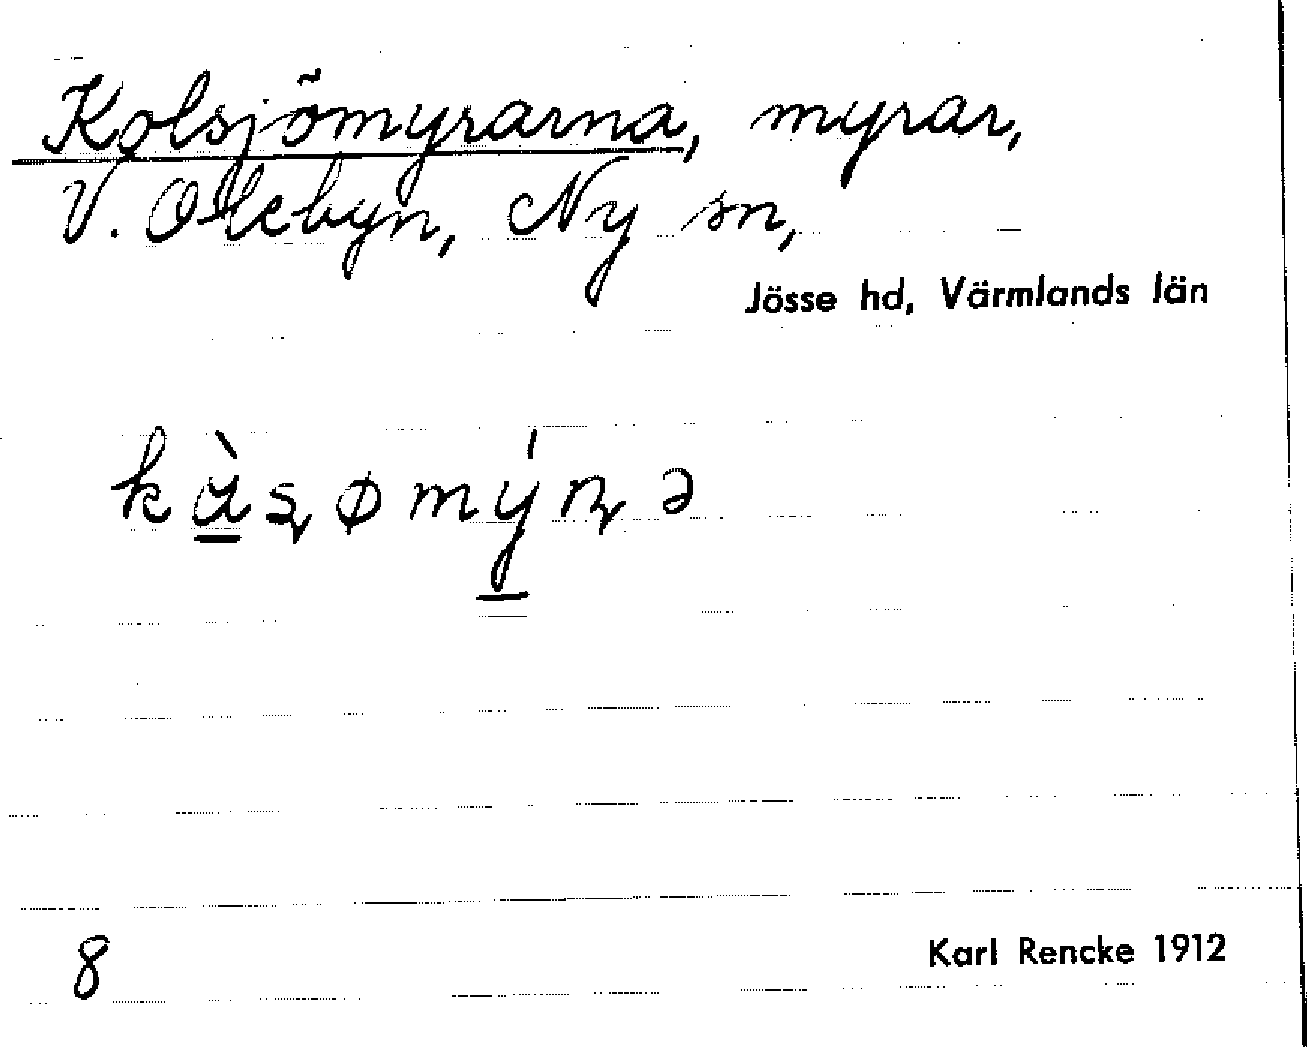 Kolsjömyrarna, myrar,
V. Olebyn, Ny sn,
Jösse hd, Värmlands län
8
Karl Rencke 1912